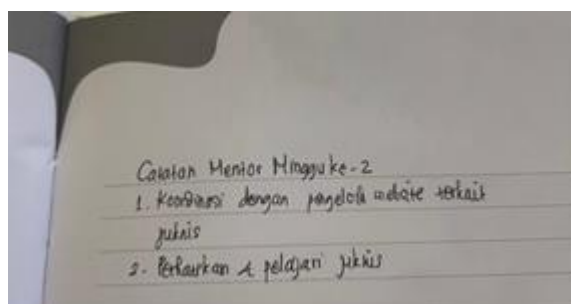 Catatan Mentor Minggu ke-2
1. Koordinasi dengan pengelola website terkait
juknis
2. Perbaikan & pelajari juknis